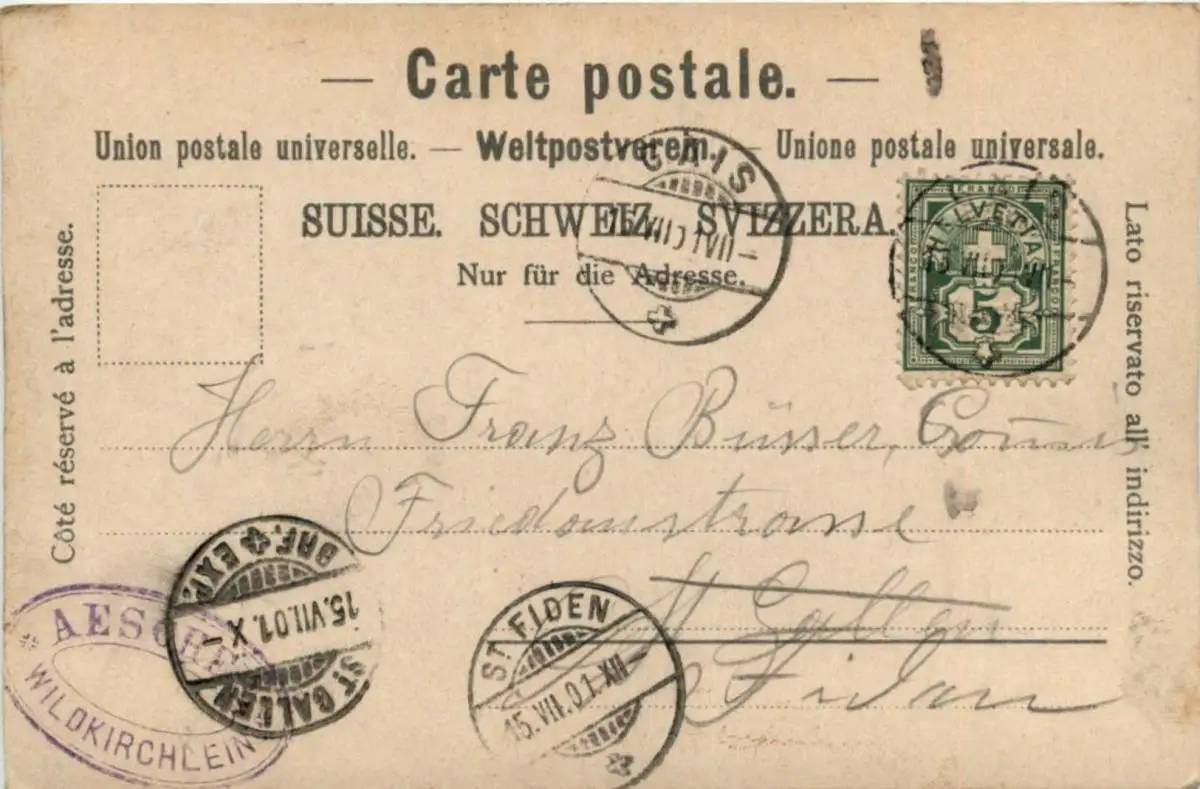 — Carte postale. —
Union postale universelle. — Weltpostverein. — Unione postale universale.
SUISSE. SCHWEIZ. SVIZZERA.
Nur für die Adresse.
Côté réservé à l'adresse.
Lato riservato all' indirizzo.
GAIS
15. VII. 01. VII —
FRANCO
HELVETIA
FRANCO FRANCO
5
Herrn Franz Büsser,
St Gallen
St. Fiden
BRF. EXP.
15. VII. 01. X —
ST GALLEN
ST. FIDEN
15. VII. 01. XII —
AESCHER
WILDKIRCHLEIN